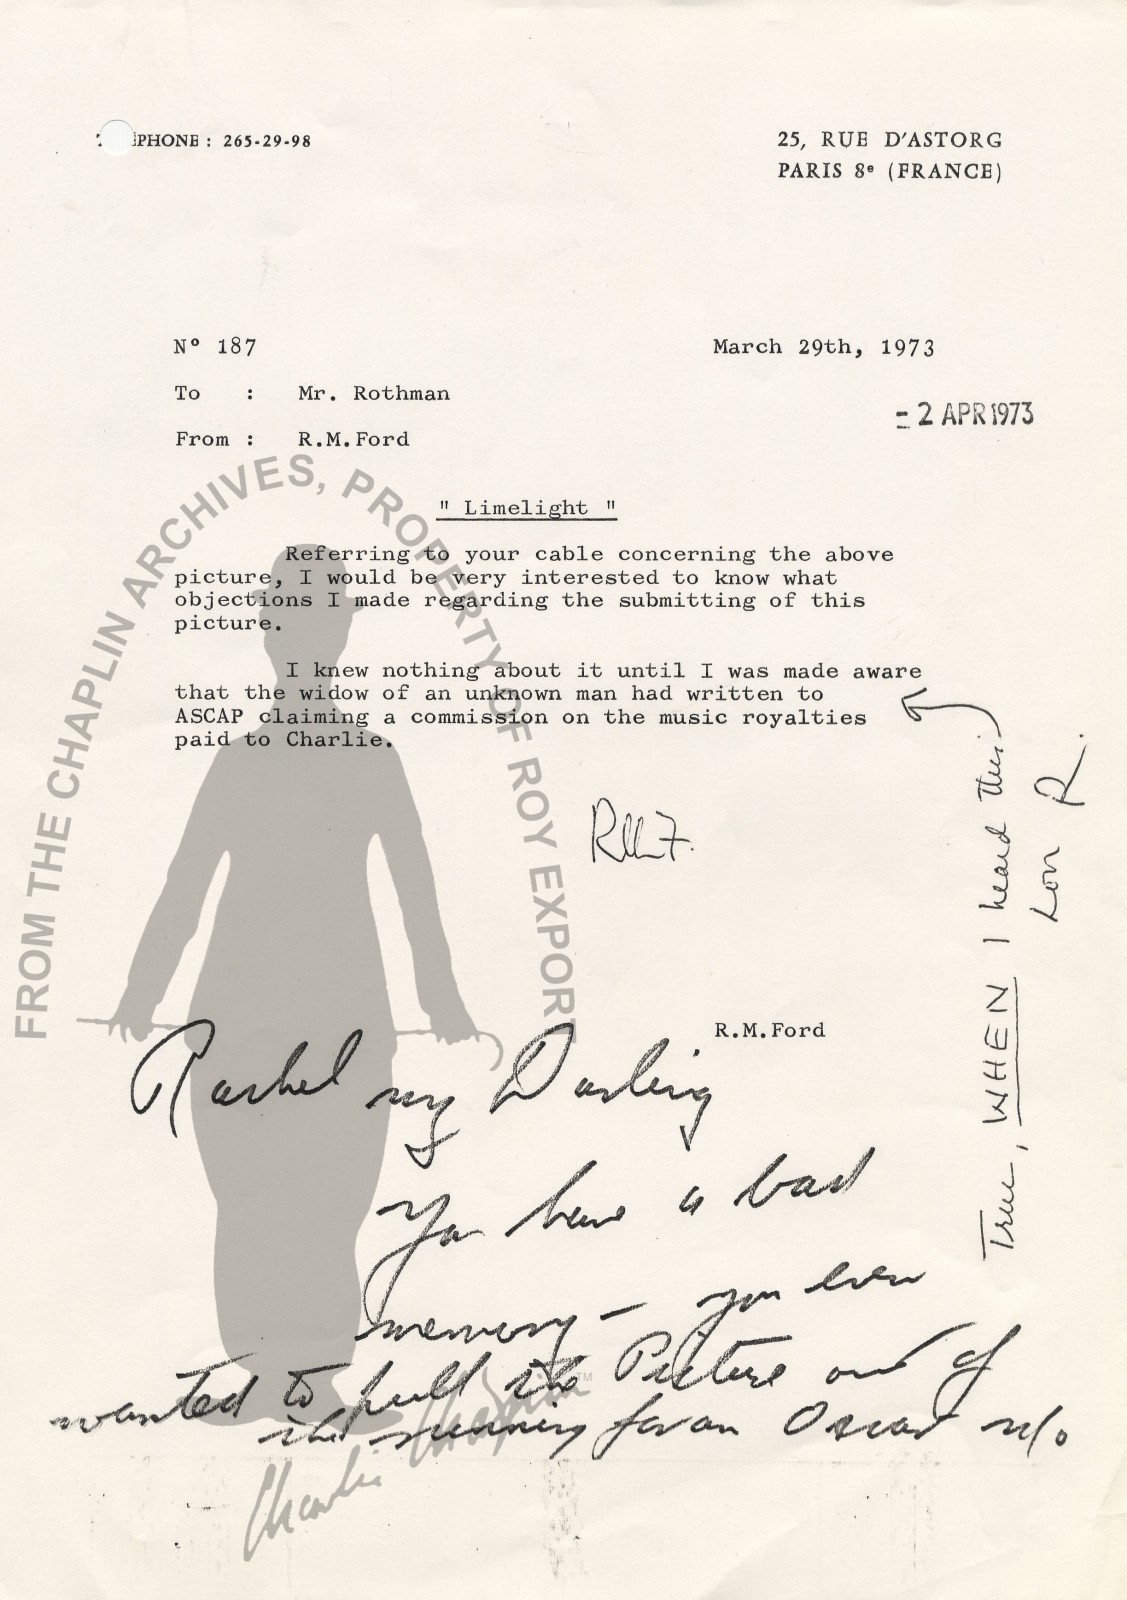 EPHONE : 265-29-98
25, RUE D'ASTORG
PARIS 8e (FRANCE)
N° 187
March 29th, 1973
To : Mr. Rothman
- 2 APR 1973
From : R.M.Ford
" Limelight "
Referring to your cable concerning the above
picture, I would be very interested to know what
objections I made regarding the submitting of this
picture.
I knew nothing about it until I was made aware
that the widow of an unknown man had written to
ASCAP claiming a commission on the music royalties
paid to Charlie.
R.M.Ford
True, WHEN I heard this.
Rachel my Darling
You have a bad
memory – you even
wanted to pull the Picture out of
the running for an Oscar
FROM THE CHAPLIN ARCHIVES, PROPERTY OF ROY EXPORT
Charlie Chaplin TM